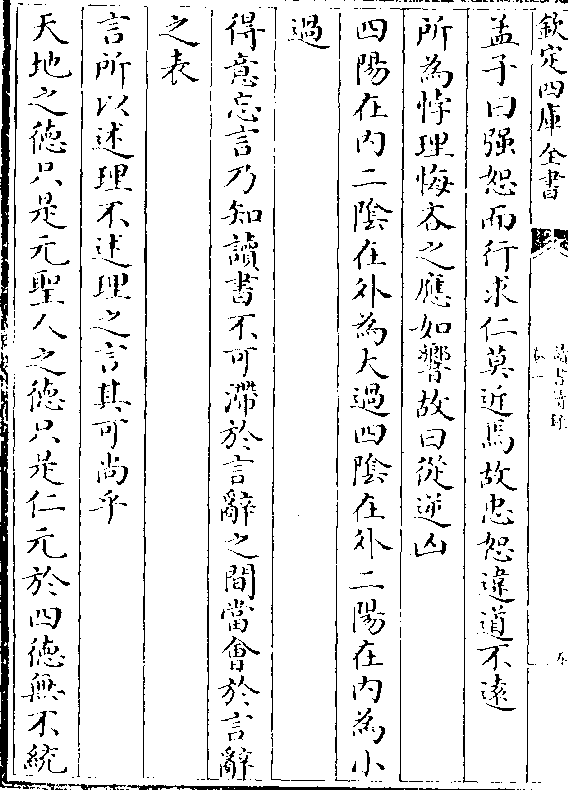 欽定四庫全書
孟子曰强恕而行求仁莫近焉故忠恕違道不遠
所為悖理悔吝之應如響故曰從逆凶
四陽在内二陰在外為大過四陰在外二陽在内為小
過
得意忘言乃知讀書不可滯於言辭之間當會於言辭
之表
言所以述理不述理之言其可尚乎
天地之德只是元聖人之德只是仁元於四德無不統